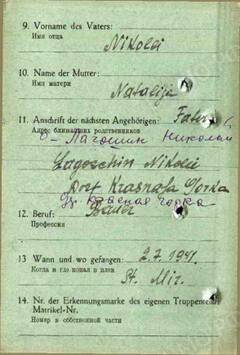 9. Vorname des Vaters:
Имя отца
Nikolei
10. Name der Mutter:
Имя матери
Natalija
11. Anschrift der nächsten Angehörigen: Vater
Адрес ближайших родственников
О- Лагошин Николай
Lagoschin Nikolei
dorf Krasnaja Gorka
Др. Красная горка
12. Beruf: Bauer
Профессия
13 Wann und wo gefangen: 2.7.1941.
Когда и где попал в плен
St. Mir.
14. Nr. der Erkennungsmarke des eigenen Truppenteils
Matrikel-Nr.
Номер в собственной части